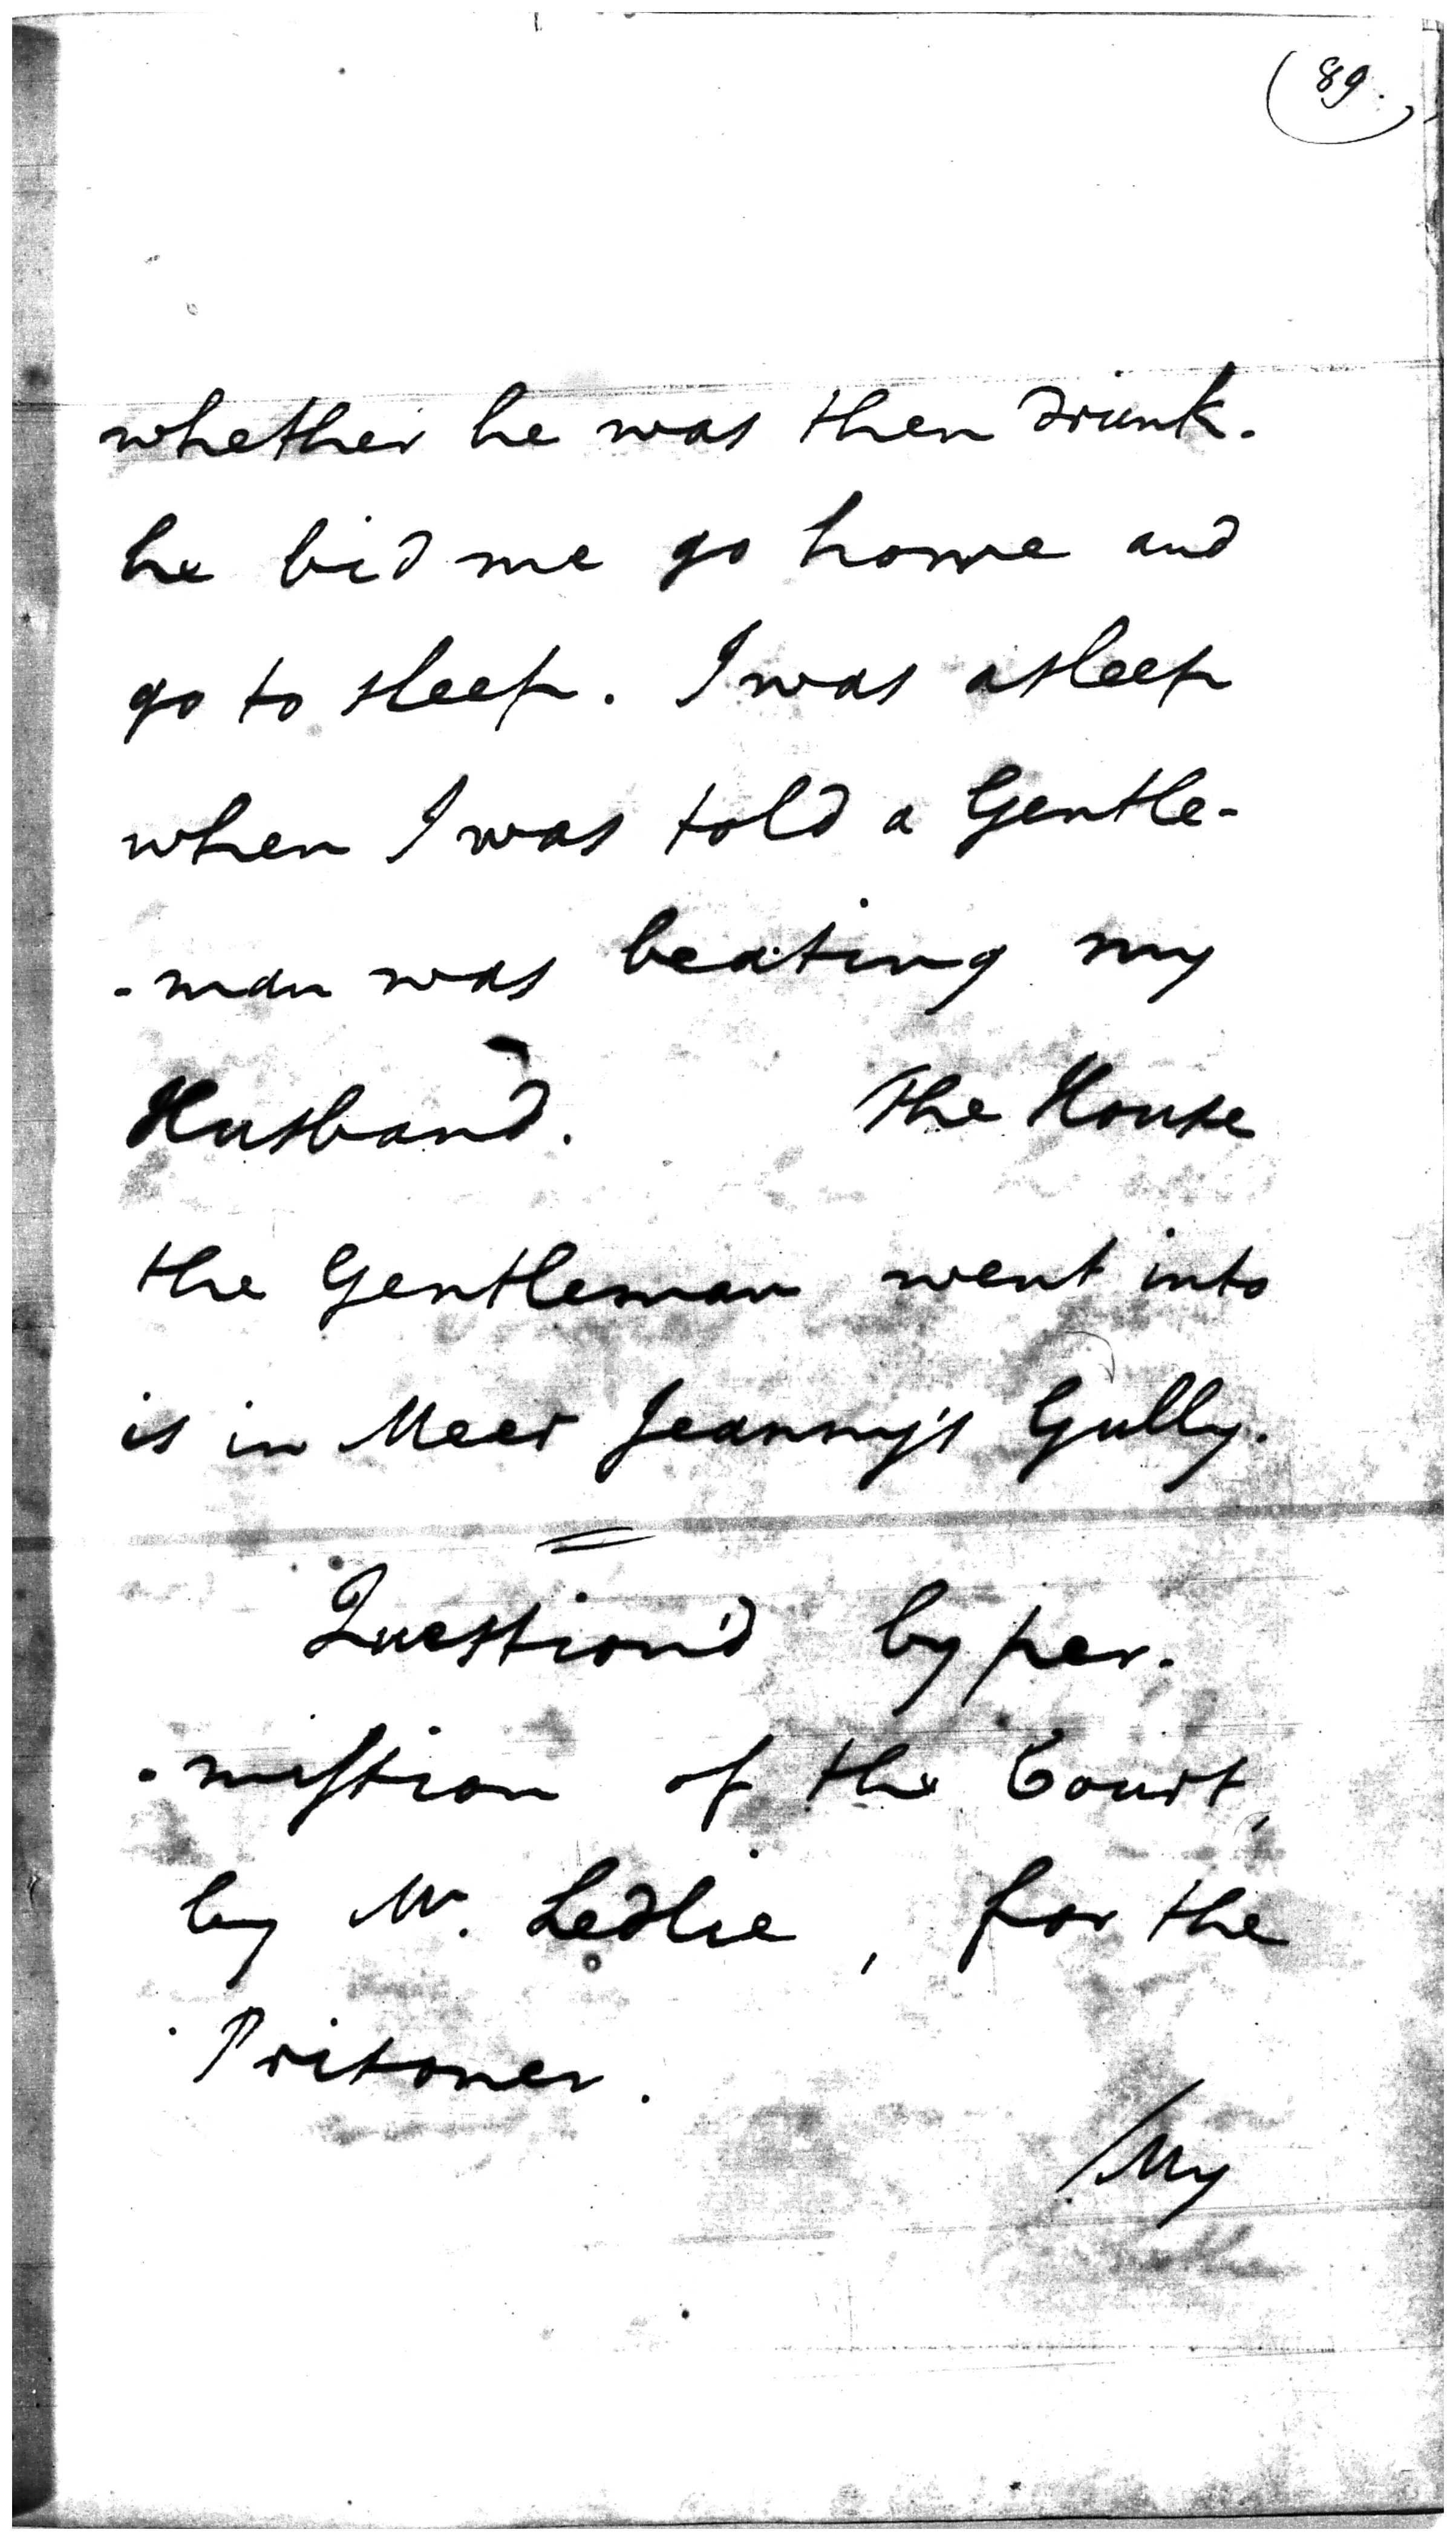 (89.)
whether he was then drunk.
he bid me go home and
go to sleep. I was asleep
when I was told a Gentle-
-man was beating my
Husband. The House
the Gentleman went into
is in Meer Jeanny's Gully.
Question'd by per-
-mission of the Court,
by Mr. Ledlie, for the
Prisoner.
My